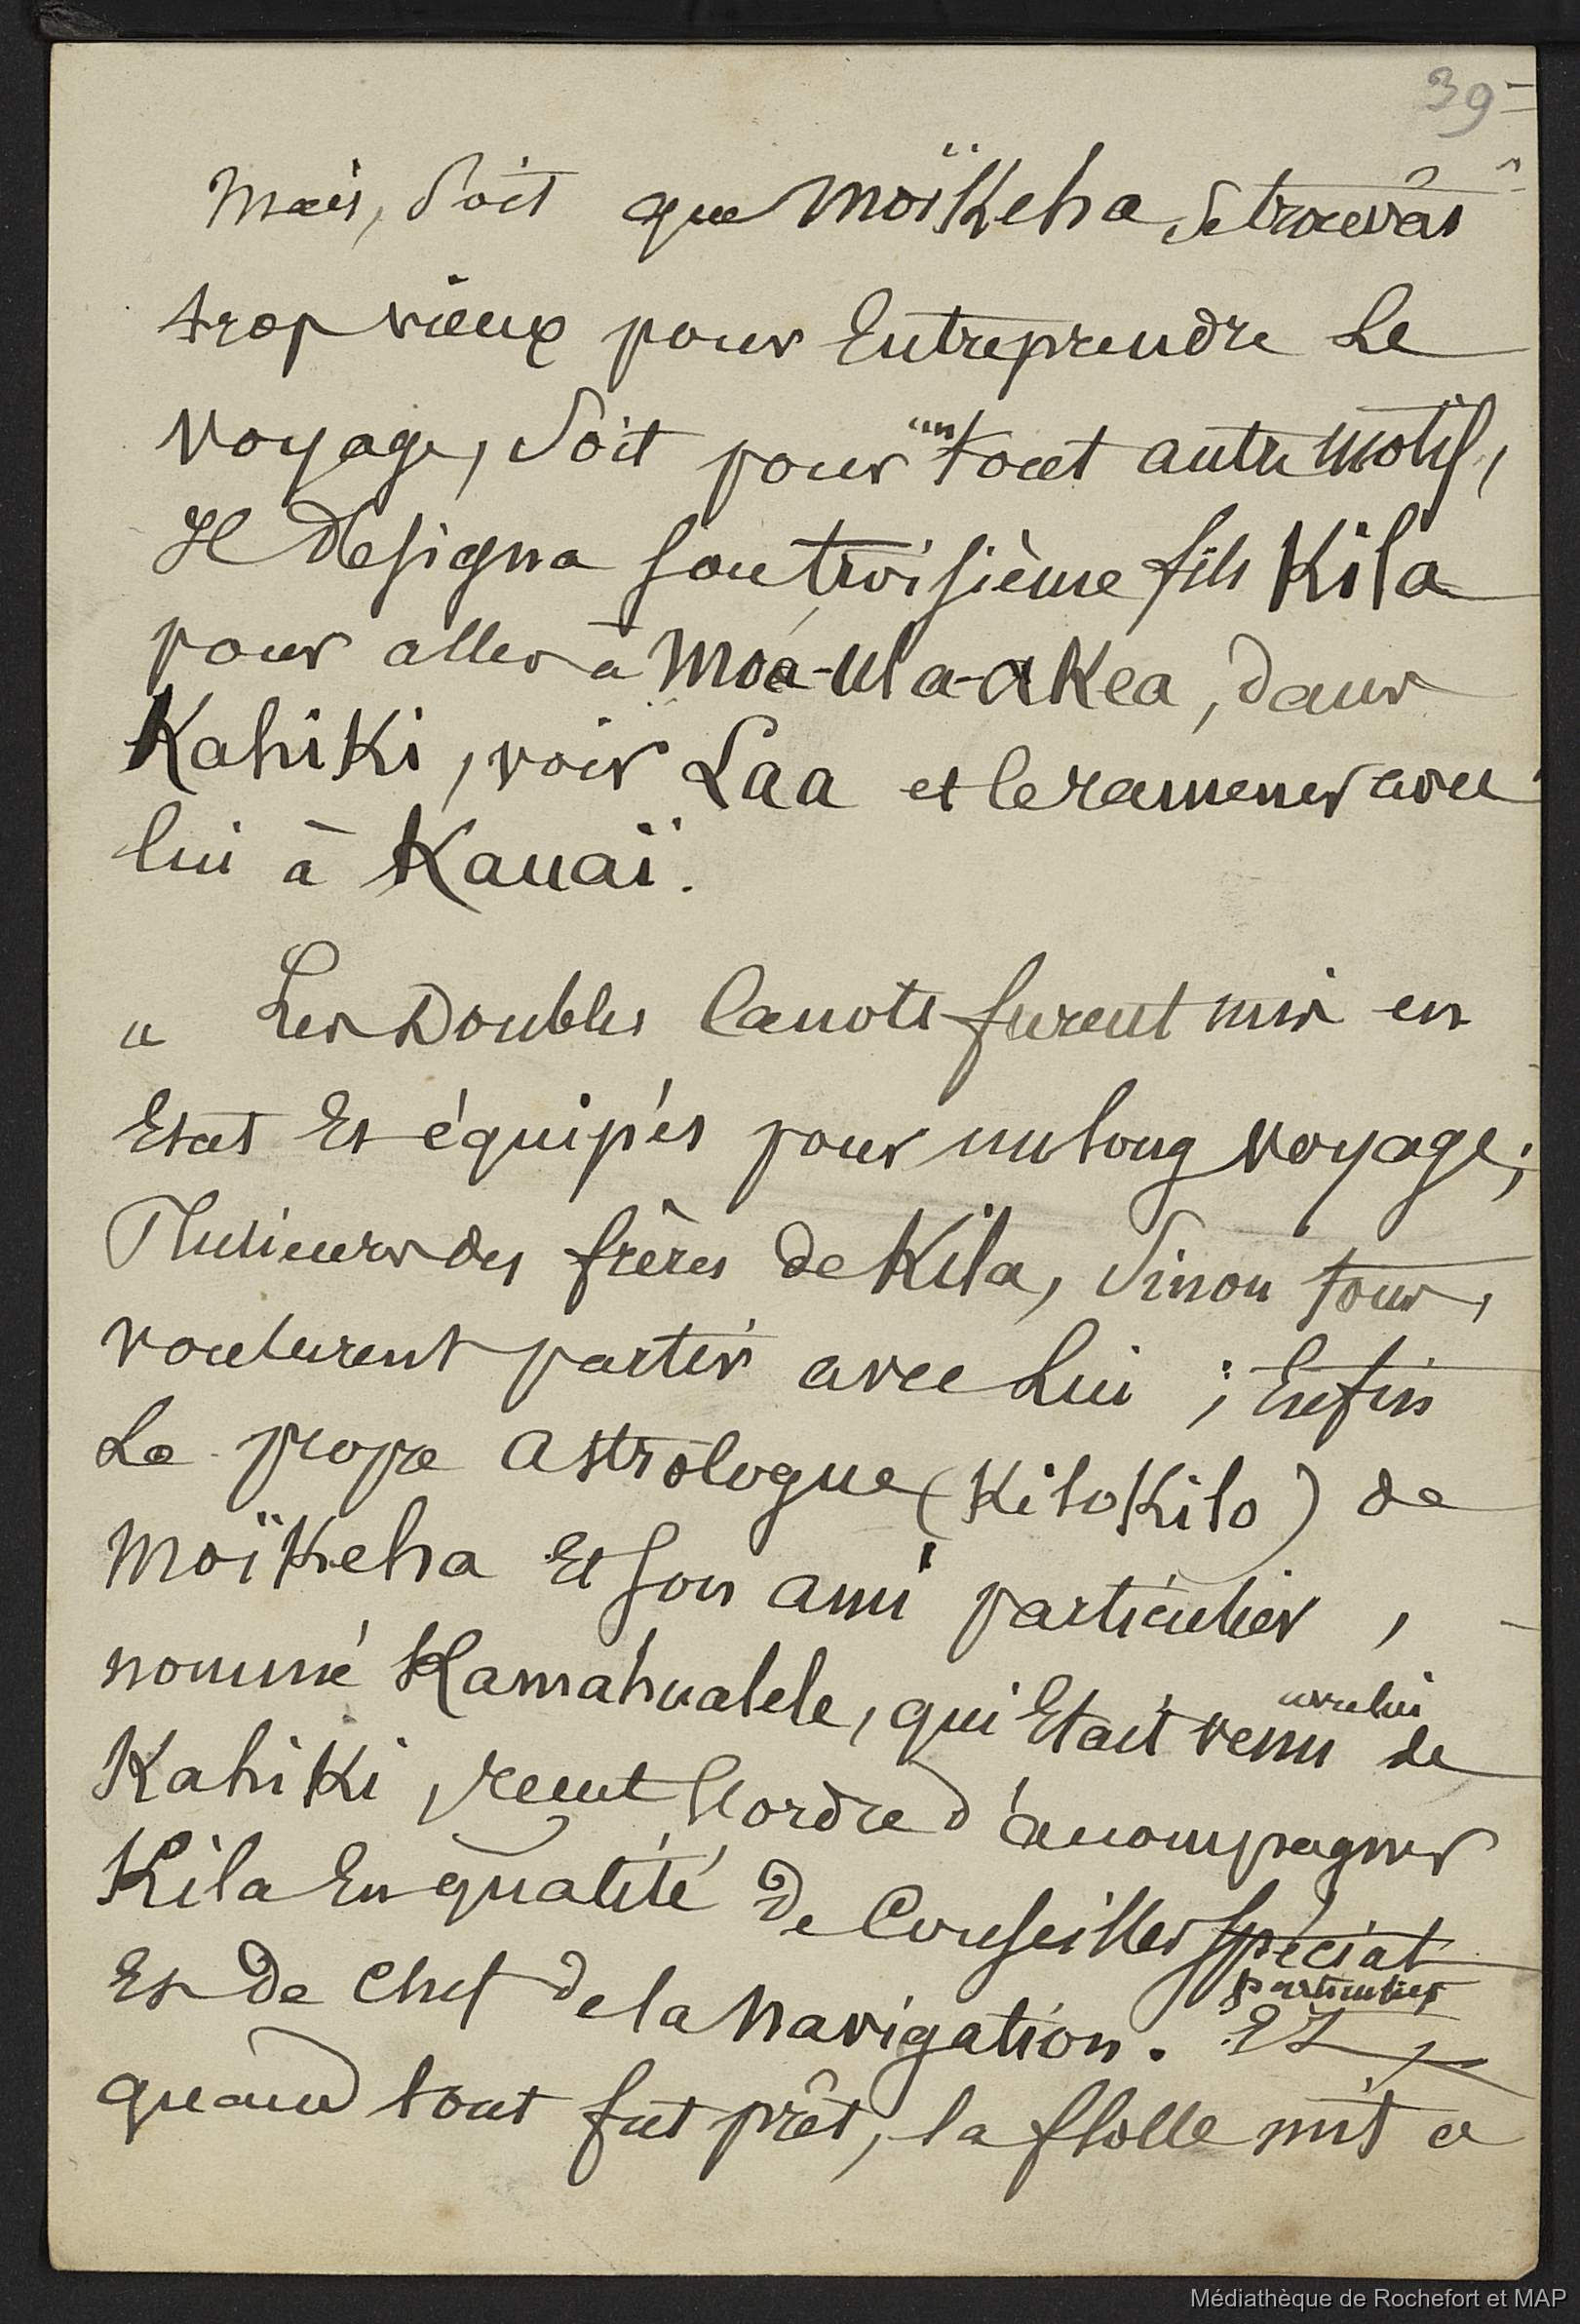 39
Mais, Soit que Moïkeha, se trouvât
trop vieux pour Entreprendre Le
voyage, Soit pour un tout autre motif,
Il Designa son troisième fils Kila
pour aller à Moa-ula-akea, dans
Kahiki, voir Laa et le ramener avec
lui à Kauaï.
" Les Doubles Canots furent mis en
Etat Et équipés pour un long voyage;
Plusieurs des frères de Kila, Sinon tous,
voulurent partir avec Lui ; Enfin
Le propre astrologue (KiloKilo) de
Moïkeha Et son ami particulier,
nommé Kamahualele, qui Etait venu avec lui de
Kahiki, reçut l'ordre d'accompagner
Kila En qualité de Conseiller spécial
particulier
Et De Chef de la Navigation. Et,
quand tout fut prêt, la flolle mit à
Médiathèque de Rochefort et MAP